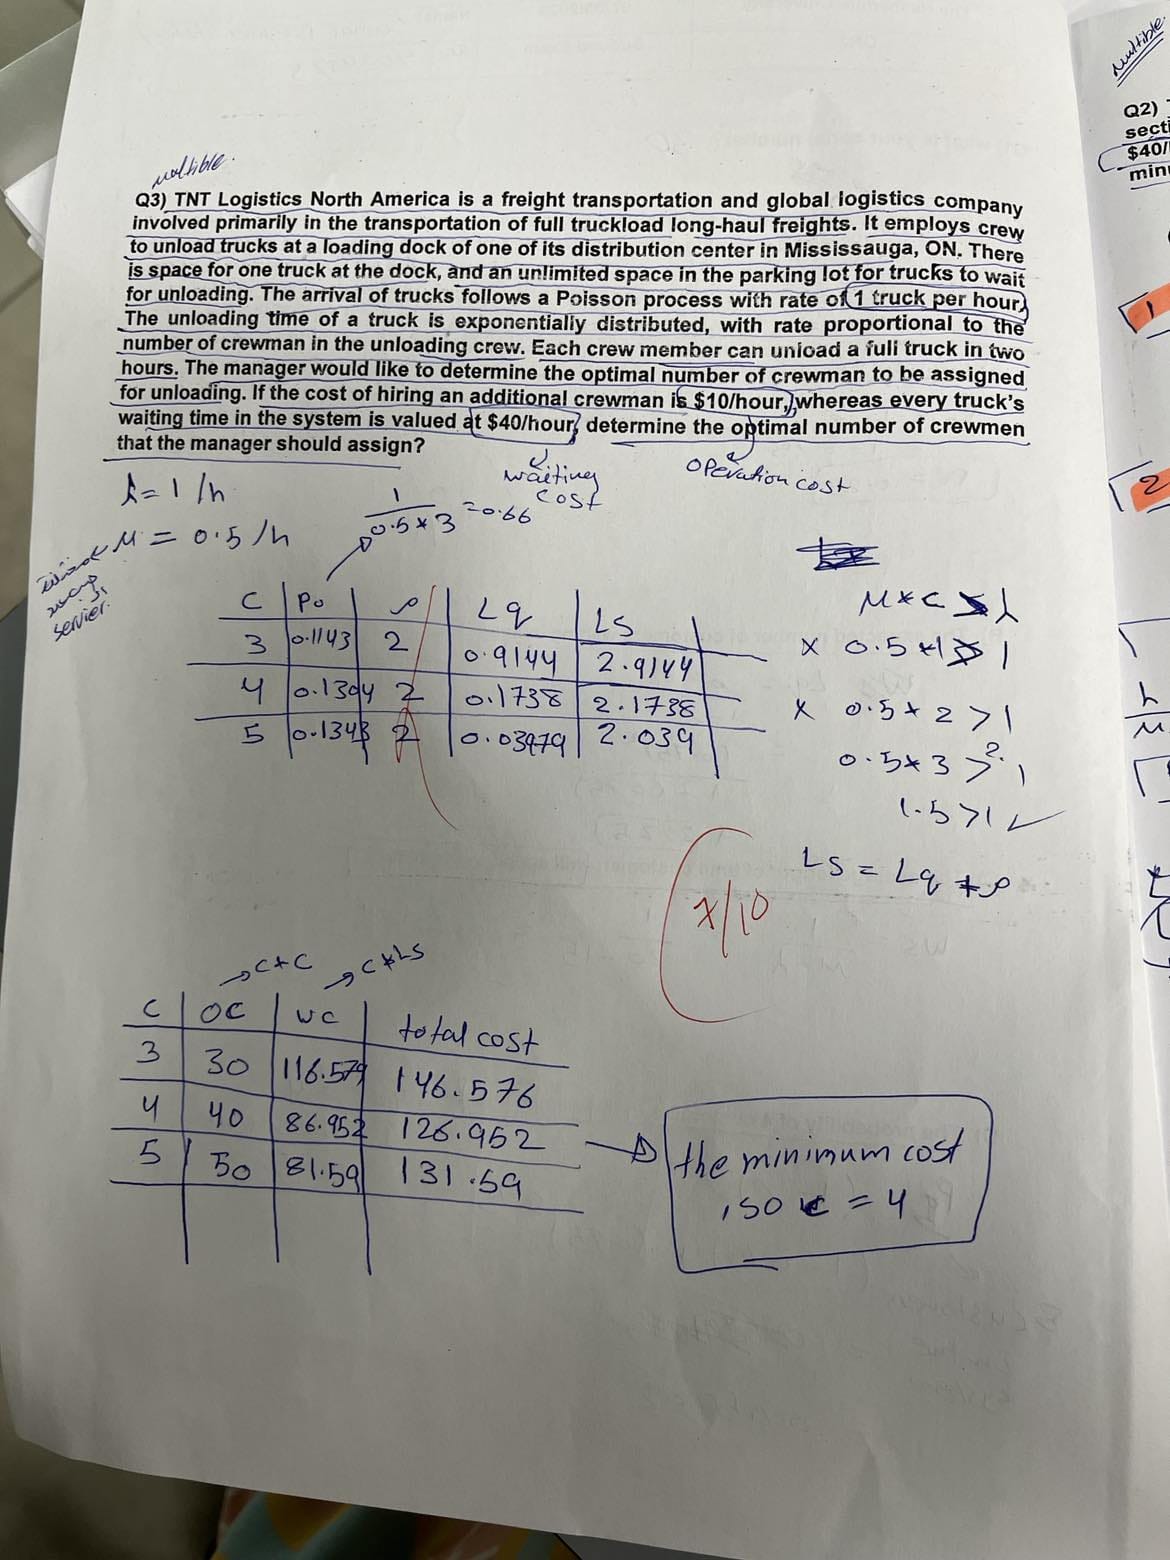 multible.
Q3) TNT Logistics North America is a freight transportation and global logistics company
involved primarily in the transportation of full truckload long-haul freights. It employs crew
to unload trucks at a loading dock of one of its distribution center in Mississauga, ON. There
is space for one truck at the dock, and an unlimited space in the parking lot for trucks to wait
for unloading. The arrival of trucks follows a Poisson process with rate of 1 truck per hour.
The unloading time of a truck is exponentially distributed, with rate proportional to the
number of crewman in the unloading crew. Each crew member can unload a full truck in two
hours. The manager would like to determine the optimal number of crewman to be assigned
for unloading. If the cost of hiring an additional crewman is $10/hour, whereas every truck's
waiting time in the system is valued at $40/hour, determine the optimal number of crewmen
that the manager should assign?
waiting cost
operation cost
λ = 1 /h
M = 0.5 /h
servier.
1
0.5*3 =0.66
C Po ρ Lq LS
3 0.1143 2 0.9144 2.9144
4 0.1304 2 0.1738 2.1738
5 0.1343 2 0.03979 2.039
M*C > λ
x 0.5*1 > 1
x 0.5*2 >1
0.5*3 >? 1
1.5>1 ✓
LS = Lq + ρ
7/10
C*C
C*LS
C OC WC total cost
3 30 116.579 146.576
4 40 86.952 126.952
5 50 81.59 131.59
the minimum cost
, so c = 4
multible
Q2)
secti
$40/
minu
1
2
λ
M